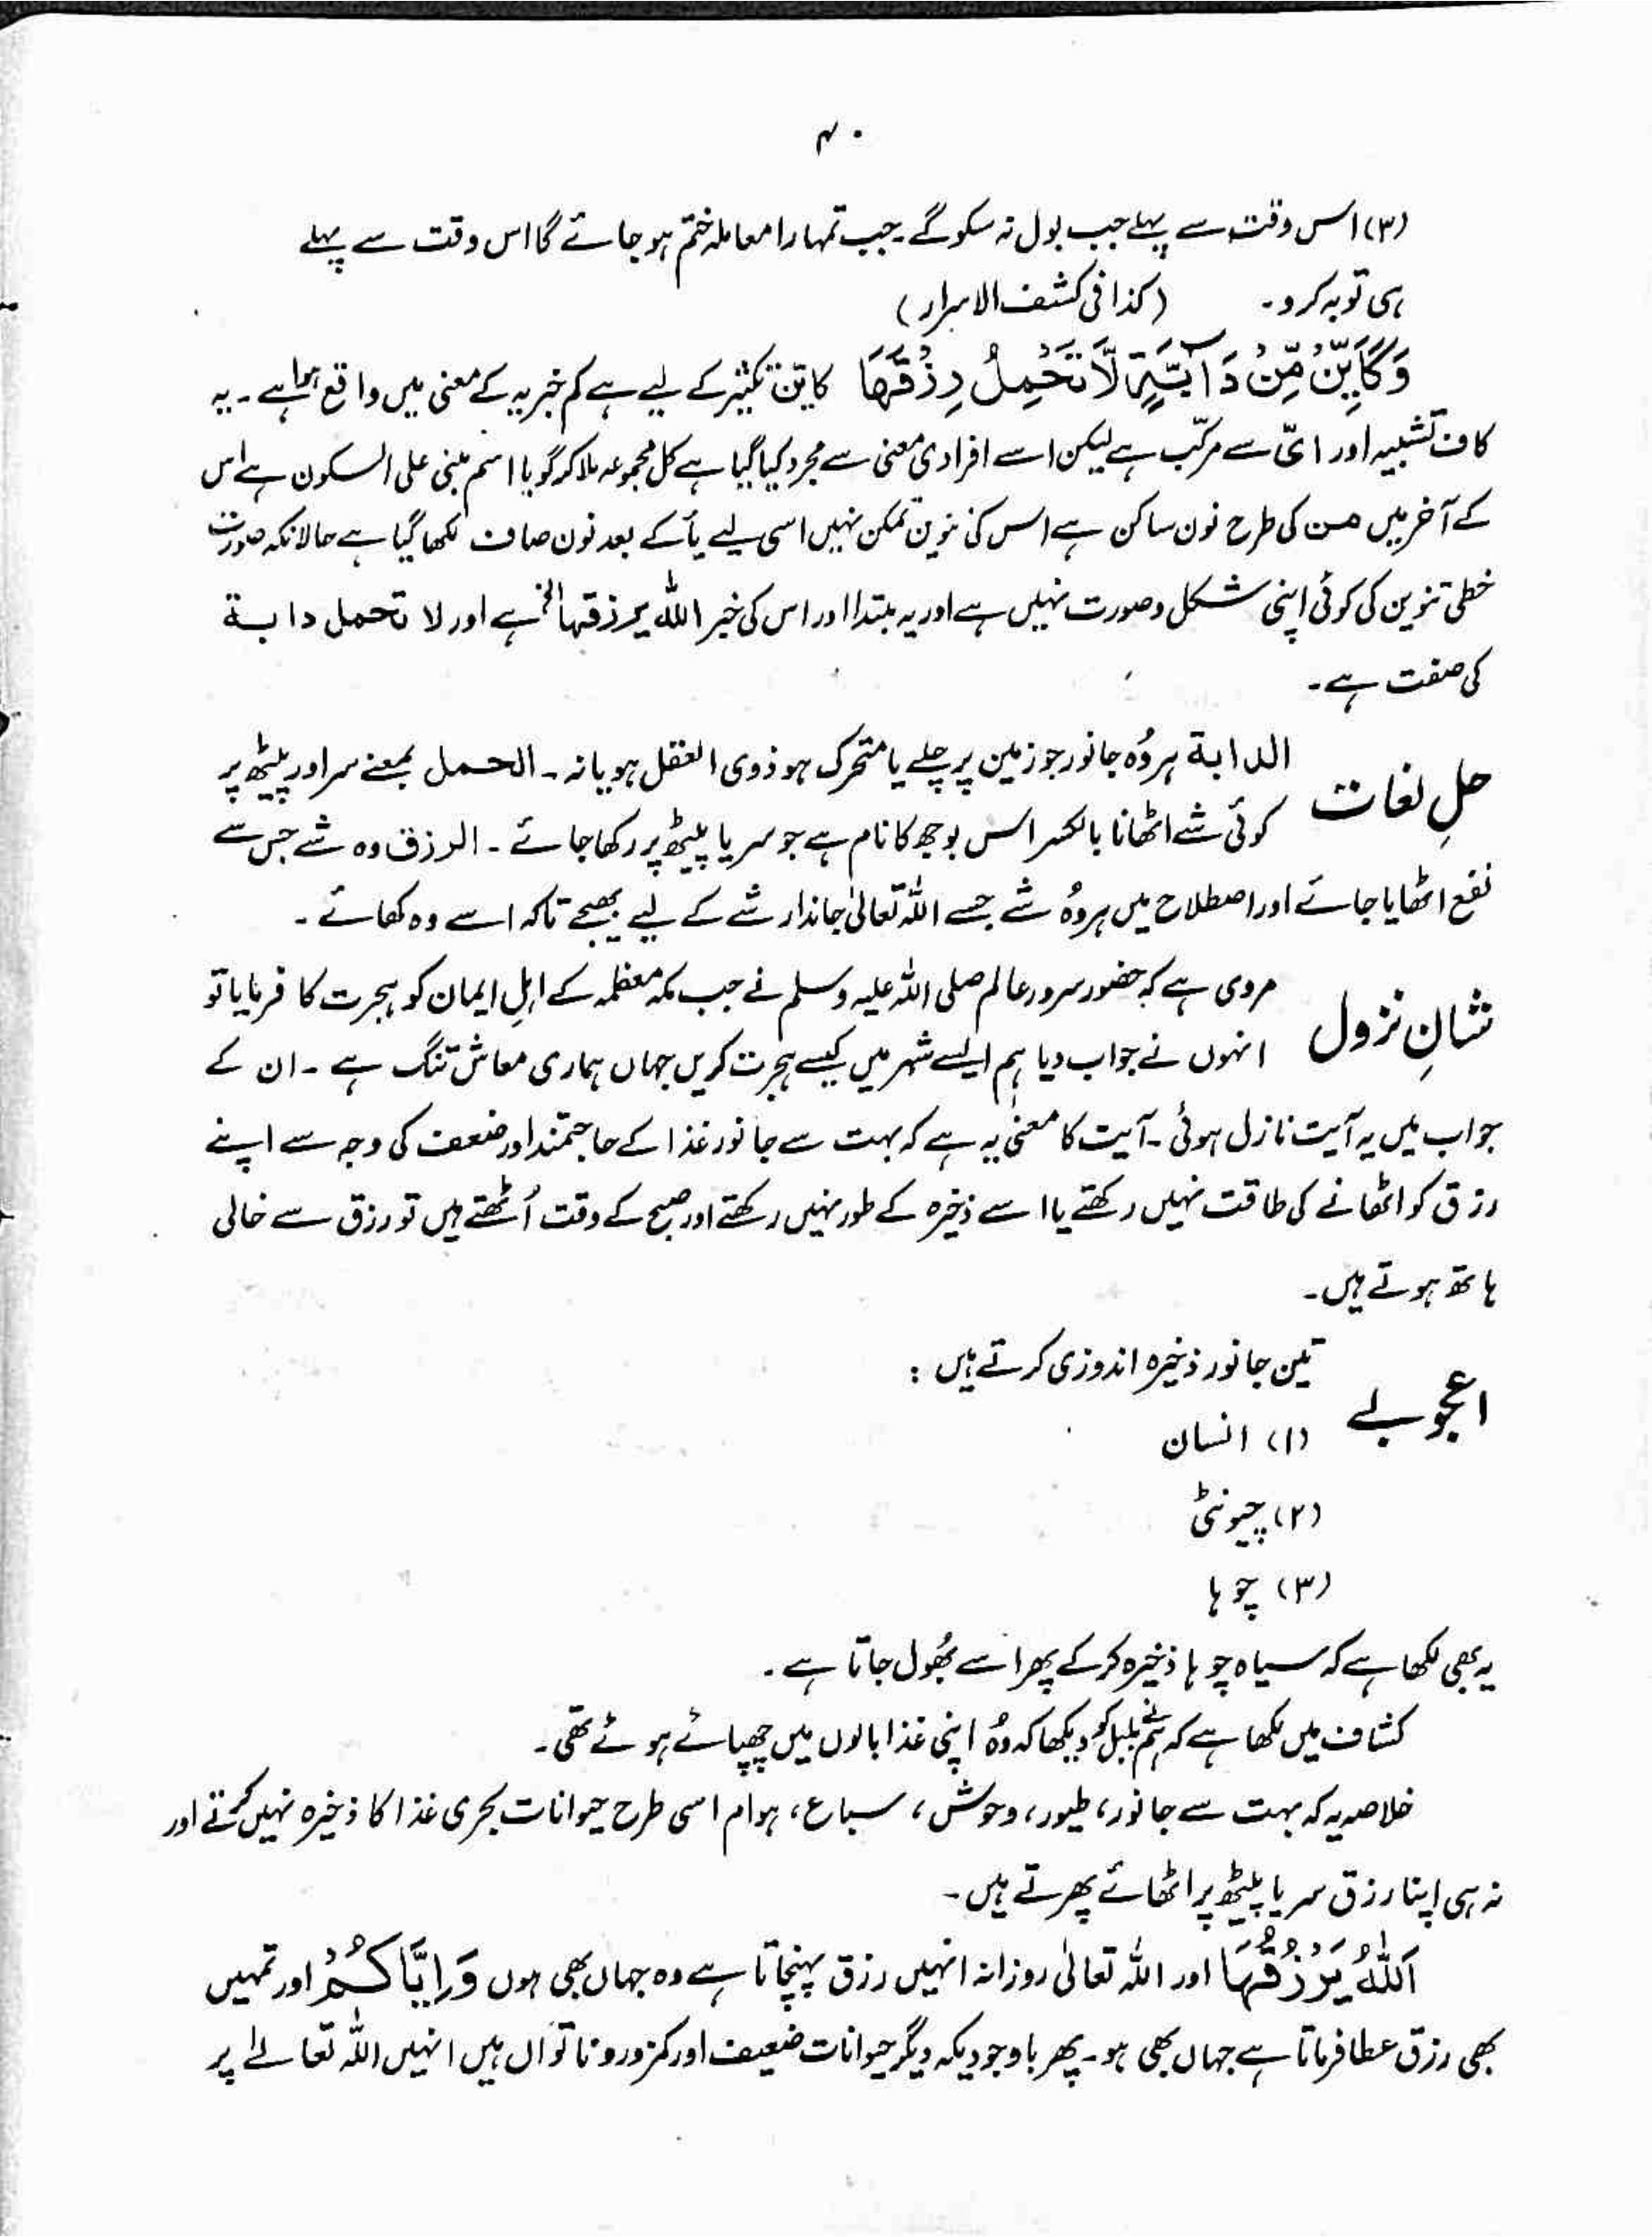 ۴۰
(۳) اس وقت سے پہلے جب بول نہ سکو گے۔ جب تمہارا معاملہ ختم ہو جائے گا اس وقت سے پہلے
ہی توبہ کرو۔ (کذا فی کشف الاسرار)
وَكَاَيِّنْ مِّنْ دَآبَّةٍ لَّا تَحْمِلُ رِزْقَهَا کاین تکثیر کے لیے ہے کم خبریہ کے معنی میں واقع ہوا ہے۔ یہ
کاف تشبیہ اور ایّ سے مرکّب ہے لیکن اسے افرادی معنی سے مجرد کیا گیا ہے کل مجموعہ ملا کر گویا اسم مبنی علی السکون ہے اس
کے آخر میں من کی طرح نون ساکن ہے اس کی تنوین تمکن نہیں اسی لیے یأ کے بعد نون صاف لکھا گیا ہے حالانکہ صورت
خطی تنوین کی کوئی اپنی شکل و صورت نہیں ہے اور یہ مبتدا اور اس کی خبر اللہ یرزقہا الخ ہے اور لا تحمل دابۃ
کی صفت ہے۔
حلِ لغات الدابۃ ہر وُہ جانور جو زمین پر چلے یا متحرک ہو ذوی العقل ہو یا نہ۔ الحمل بمعنے سر اور پیٹھ پر
کوئی شے اٹھانا بالکسر اس بوجھ کا نام ہے جو سر یا پیٹھ پر رکھا جائے۔ الرزق وہ شے جس سے
نفع اٹھایا جائے اور اصطلاح میں ہر وُہ شے جسے اللہ تعالیٰ جاندار شے کے لیے بھیجے تاکہ اسے وہ کھائے۔
شانِ نزول مروی ہے کہ حضور سرور عالم صلی اللہ علیہ وسلم نے جب مکہ معظمہ کے اہلِ ایمان کو ہجرت کا فرمایا تو
انہوں نے جواب دیا ہم ایسے شہر میں کیسے ہجرت کریں جہاں ہماری معاش تنگ ہے۔ ان کے
جواب میں یہ آیت نازل ہوئی۔ آیت کا معنیٰ یہ ہے کہ بہت سے جانور غذا کے حاجتمند اور ضعف کی وجہ سے اپنے
رزق کو اٹھانے کی طاقت نہیں رکھتے یا اسے ذخیرہ کے طور نہیں رکھتے اور صبح کے وقت اُٹھتے ہیں تو رزق سے خالی
ہاتھ ہوتے ہیں۔
اعجوبے تین جانور ذخیرہ اندوزی کرتے ہیں :
(۱) انسان
(۲) چیونٹی
(۳) چوہا
یہ بھی لکھا ہے کہ سیاہ چوہا ذخیرہ کر کے پھر اسے بھُول جاتا ہے۔
کشاف میں لکھا ہے کہ ہم نے بلبل کو دیکھا کہ وُہ اپنی غذا بالوں میں چھپائے ہوئے تھی۔
خلاصہ یہ کہ بہت سے جانور، طیور، وحوش، سباع، ہوام اسی طرح حیوانات بحری غذا کا ذخیرہ نہیں کرتے اور
نہ ہی اپنا رزق سر یا پیٹھ پر اٹھائے پھرتے ہیں۔
اَللّٰهُ يَرْزُقُهَا اور اللہ تعالیٰ روزانہ انہیں رزق پہنچاتا ہے وہ جہاں بھی ہوں وَاِيَّاكُمْ اور تمہیں
بھی رزق عطا فرماتا ہے جہاں بھی ہو۔ پھر باوجودیکہ دیگر حیوانات ضعیف اور کمزور و ناتواں ہیں انہیں اللہ تعالےٰ پر